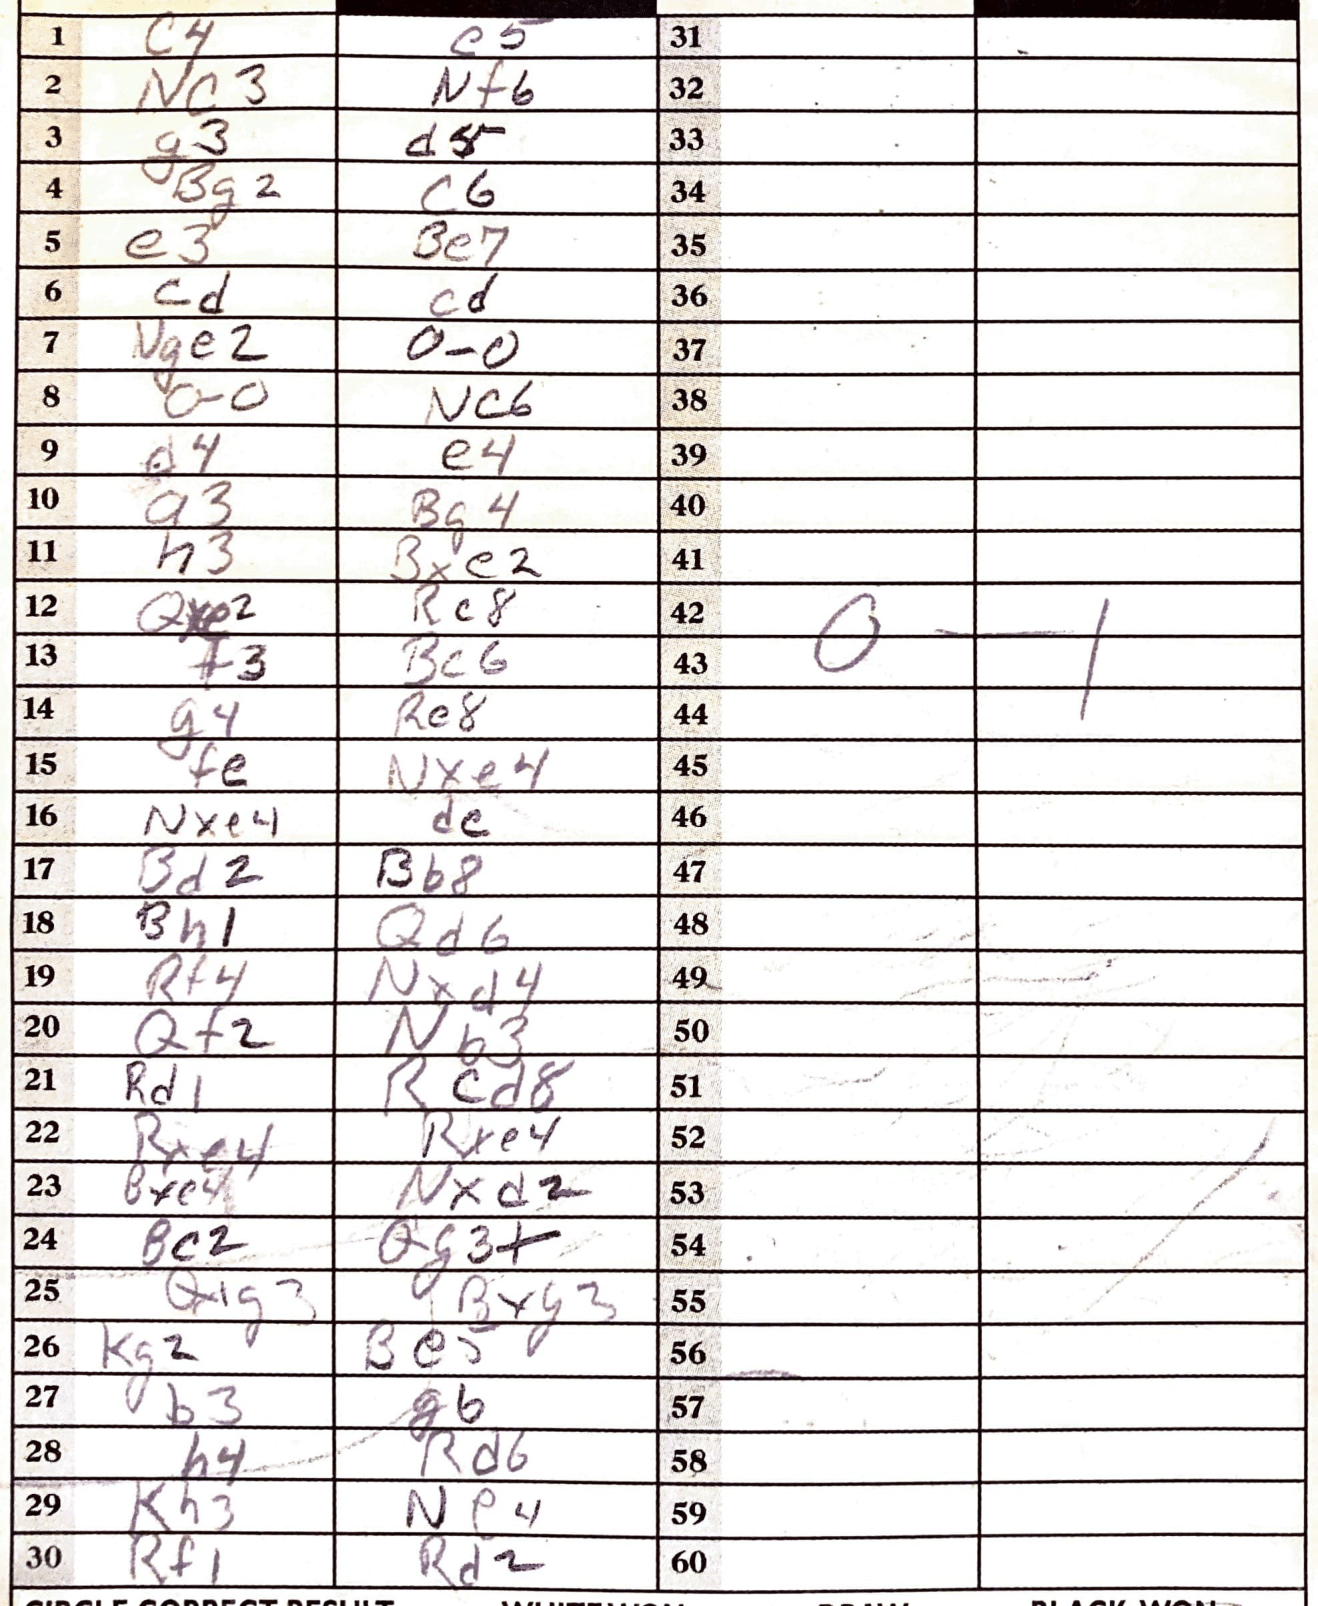 1 C4 e5 31
2 NC3 Nf6 32
3 g3 d5 33
4 Bg2 C6 34
5 e3 Be7 35
6 cd cd 36
7 Nge2 0-0 37
8 0-0 NC6 38
9 d4 e4 39
10 a3 Bg4 40
11 h3 Bxe2 41
12 Qxe2 Rc8 42
13 f3 Bc6 43 0-1
14 g4 Re8 44
15 fe Nxe4 45
16 Nxe4 de 46
17 Bd2 Bb8 47
18 Bh1 Qd6 48
19 Rf4 Nxd4 49
20 Qf2 Nb3 50
21 Rd1 Rcd8 51
22 Rxe4 Rxe4 52
23 Bxe4 Nxd2 53
24 Bc2 Qg3+ 54
25 Qxg3 Bxg3 55
26 Kg2 Be5 56
27 b3 g6 57
28 h4 Rd6 58
29 Kh3 Ne4 59
30 Rf1 Rd2 60
CIRCLE CORRECT RESULT WHITE WON DRAW BLACK WON